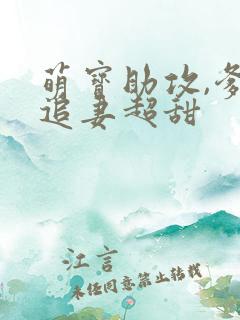 萌寶助攻,爹
追妻超甜
江言
未经同意禁止转载